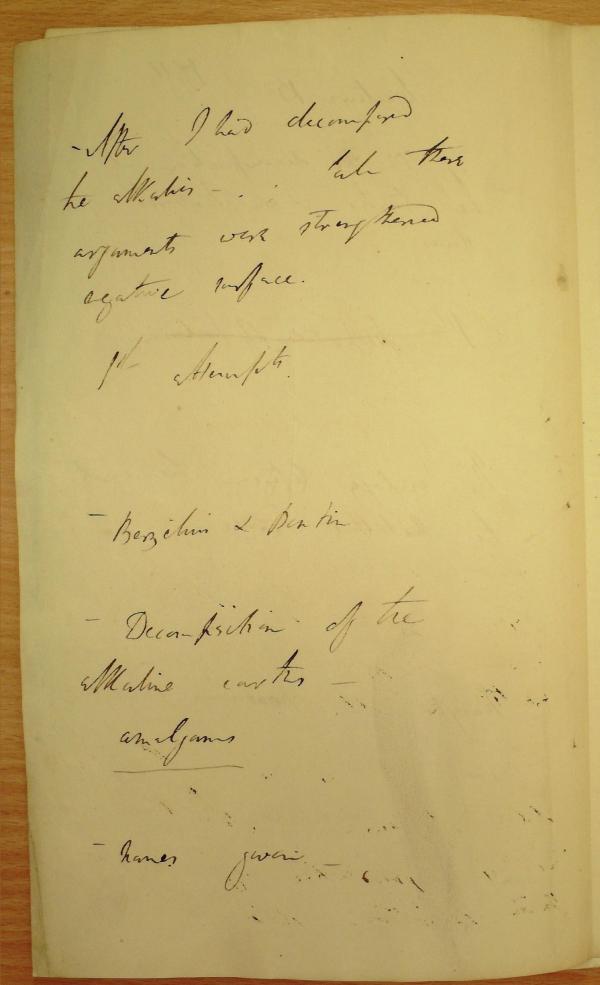 - After I had decomposed
the alkalies - . . these
arguments were strengthened
negative surface.
1st attempts.
- Berzelius & Pontin
- Decomposition of the
alkaline earths -
amalgams
- names given -